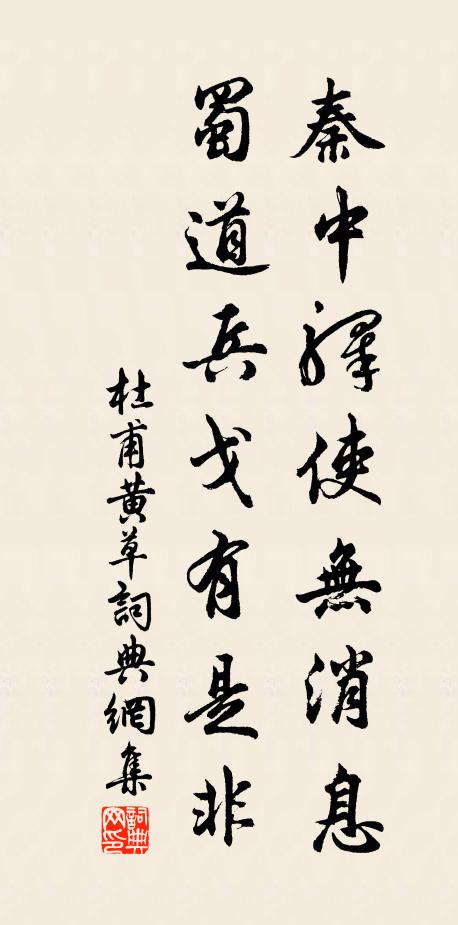 秦中驛使無消息
蜀道兵戈有是非
杜甫黃草詞典網集
詞典網印